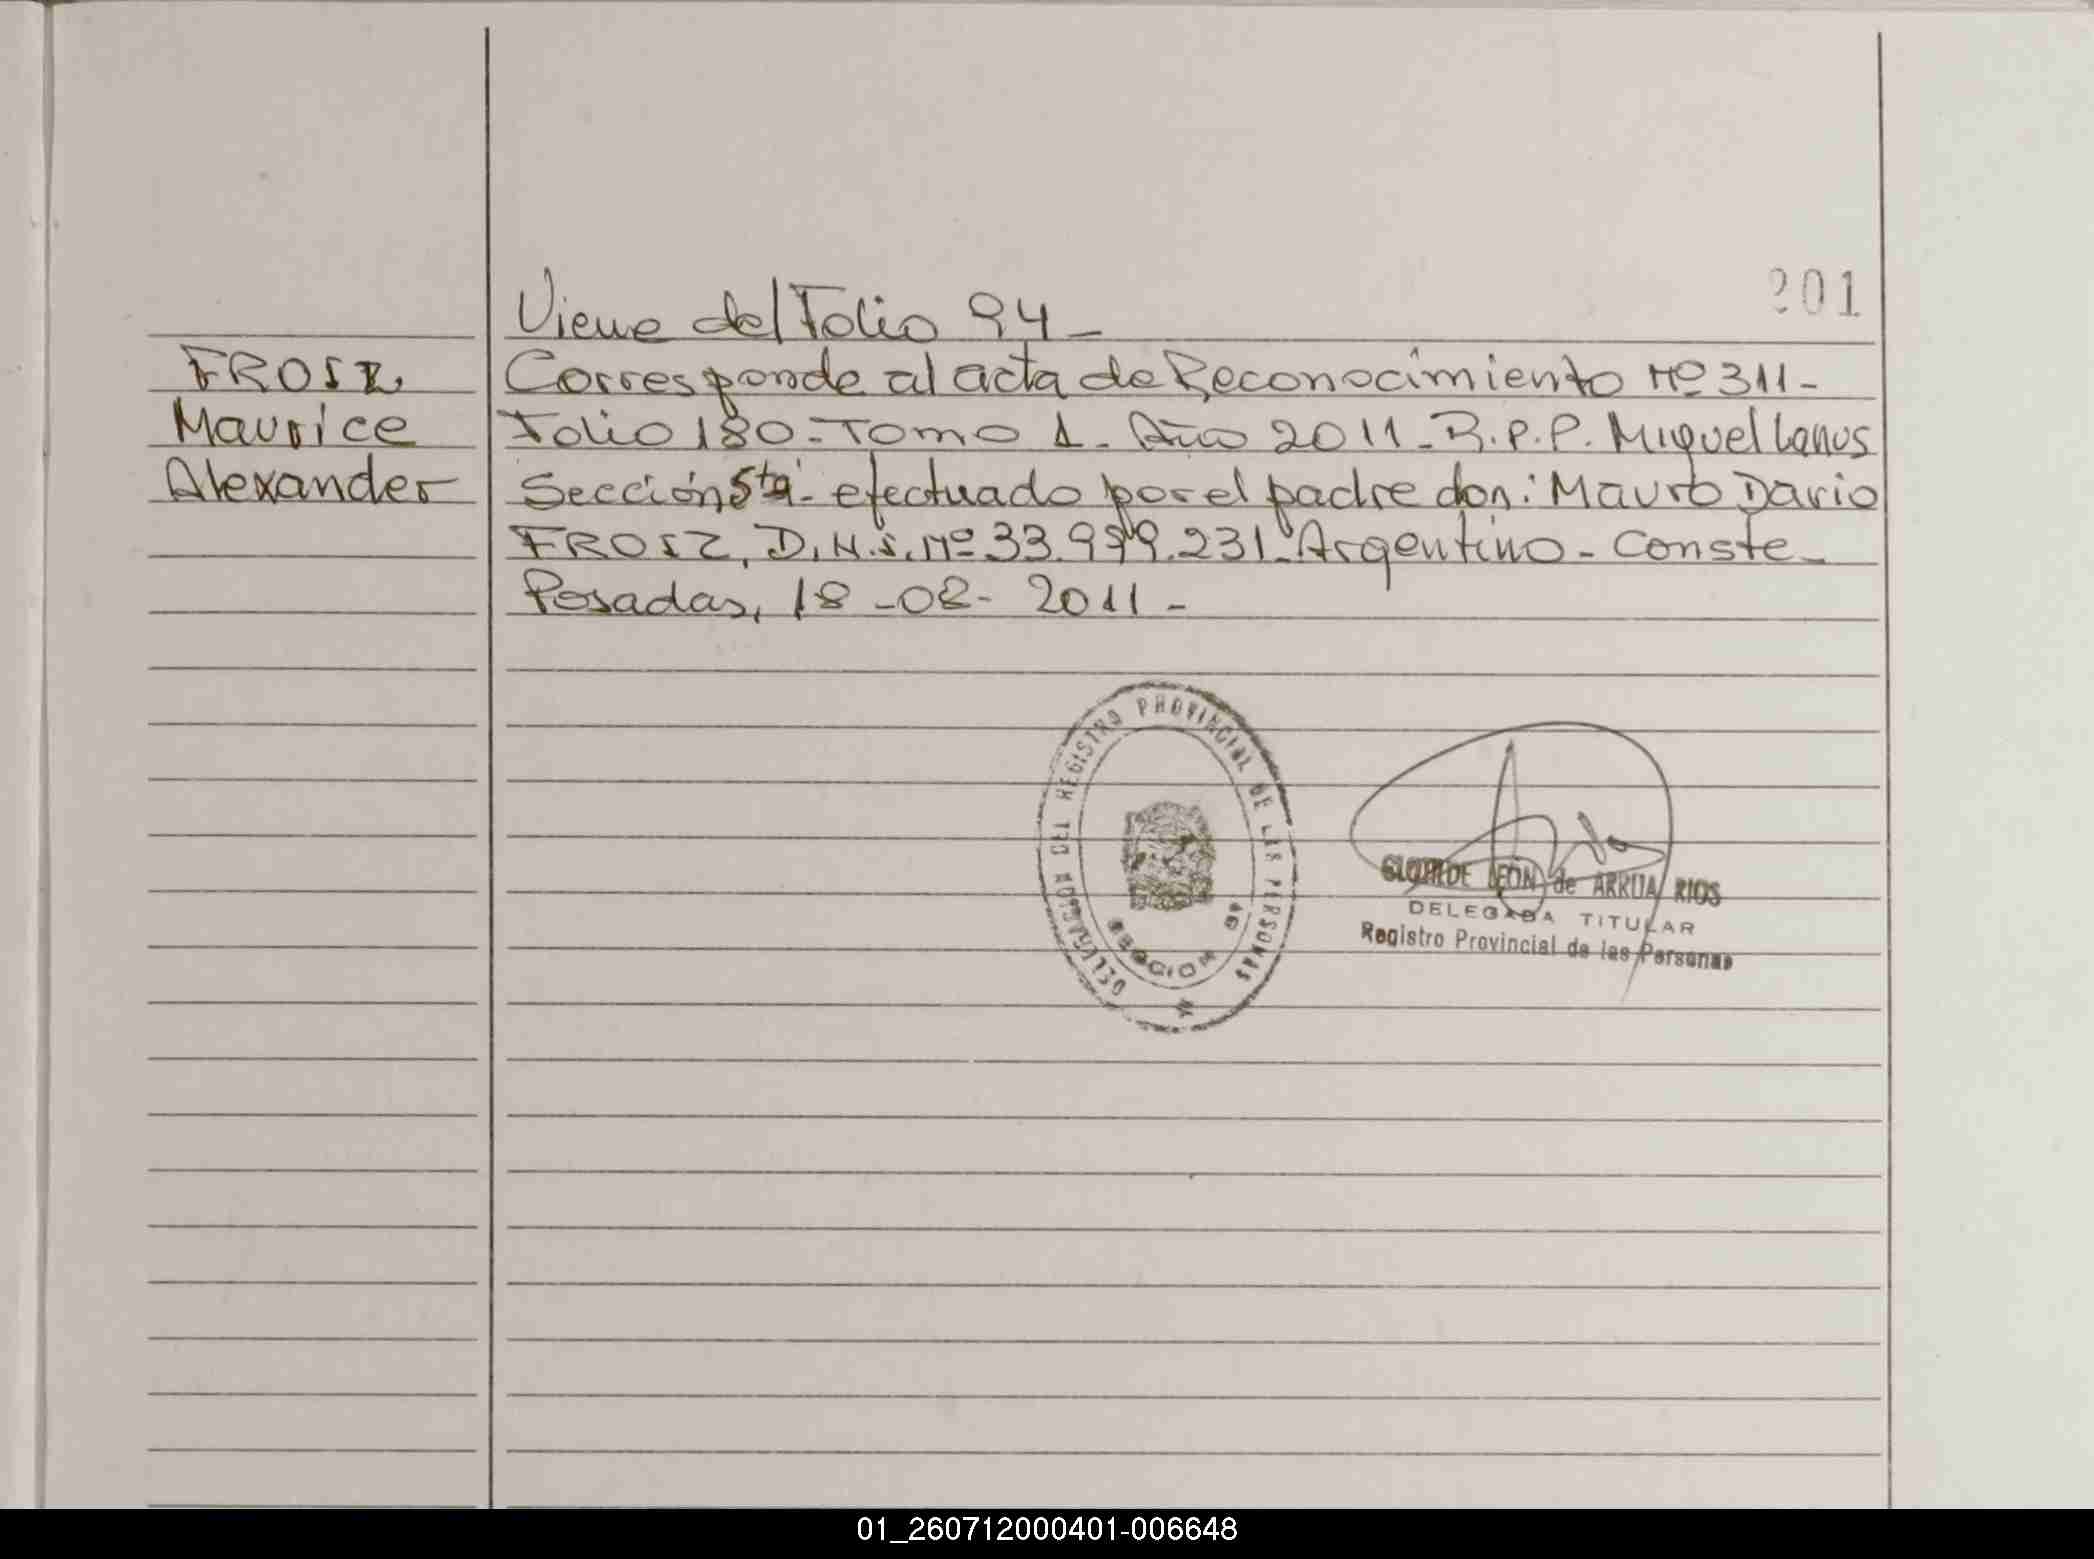 201
Viene del Folio 94-
FROSZ,
Maurice
Alexander
Corresponde al acta de Reconocimiento Nº 311-
Folio 180-Tomo 1- Año 2011-R.P.P. Miguel Lanus
Sección 5ta- efectuado por el padre don: Mauro Dario
FROSZ, D.N.I. Nº 33.999.231-Argentino-Conste-
Posadas, 18-08-2011-
DELEGACION DEL REGISTRO PROVINCIAL DE LAS PERSONAS
SECCION
CLOTILDE LEON de ARRUA RIOS
DELEGADA TITULAR
Registro Provincial de las Personas
01_260712000401-006648